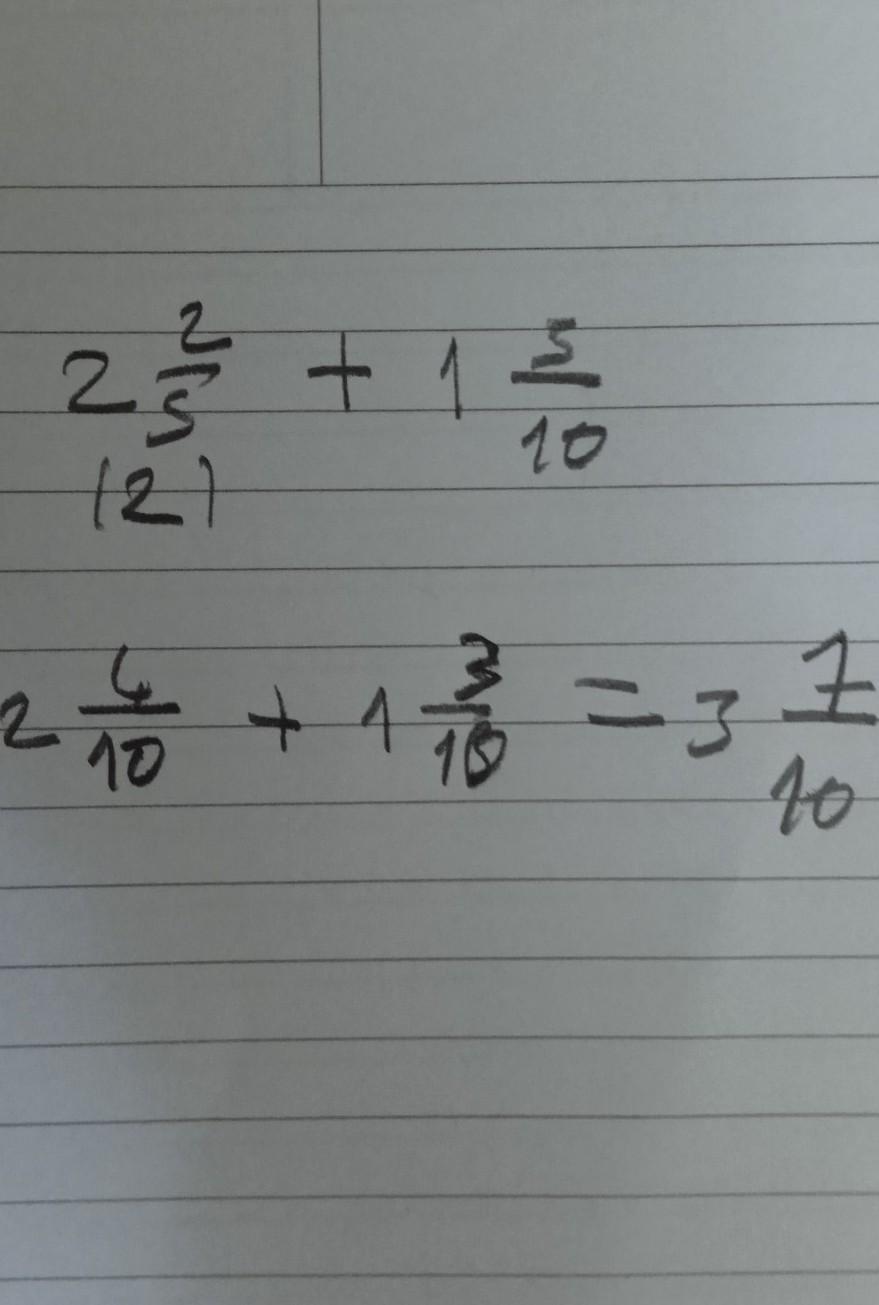 2 2/5 + 1 5/10
(2)
2 4/10 + 1 3/10 = 3 7/10